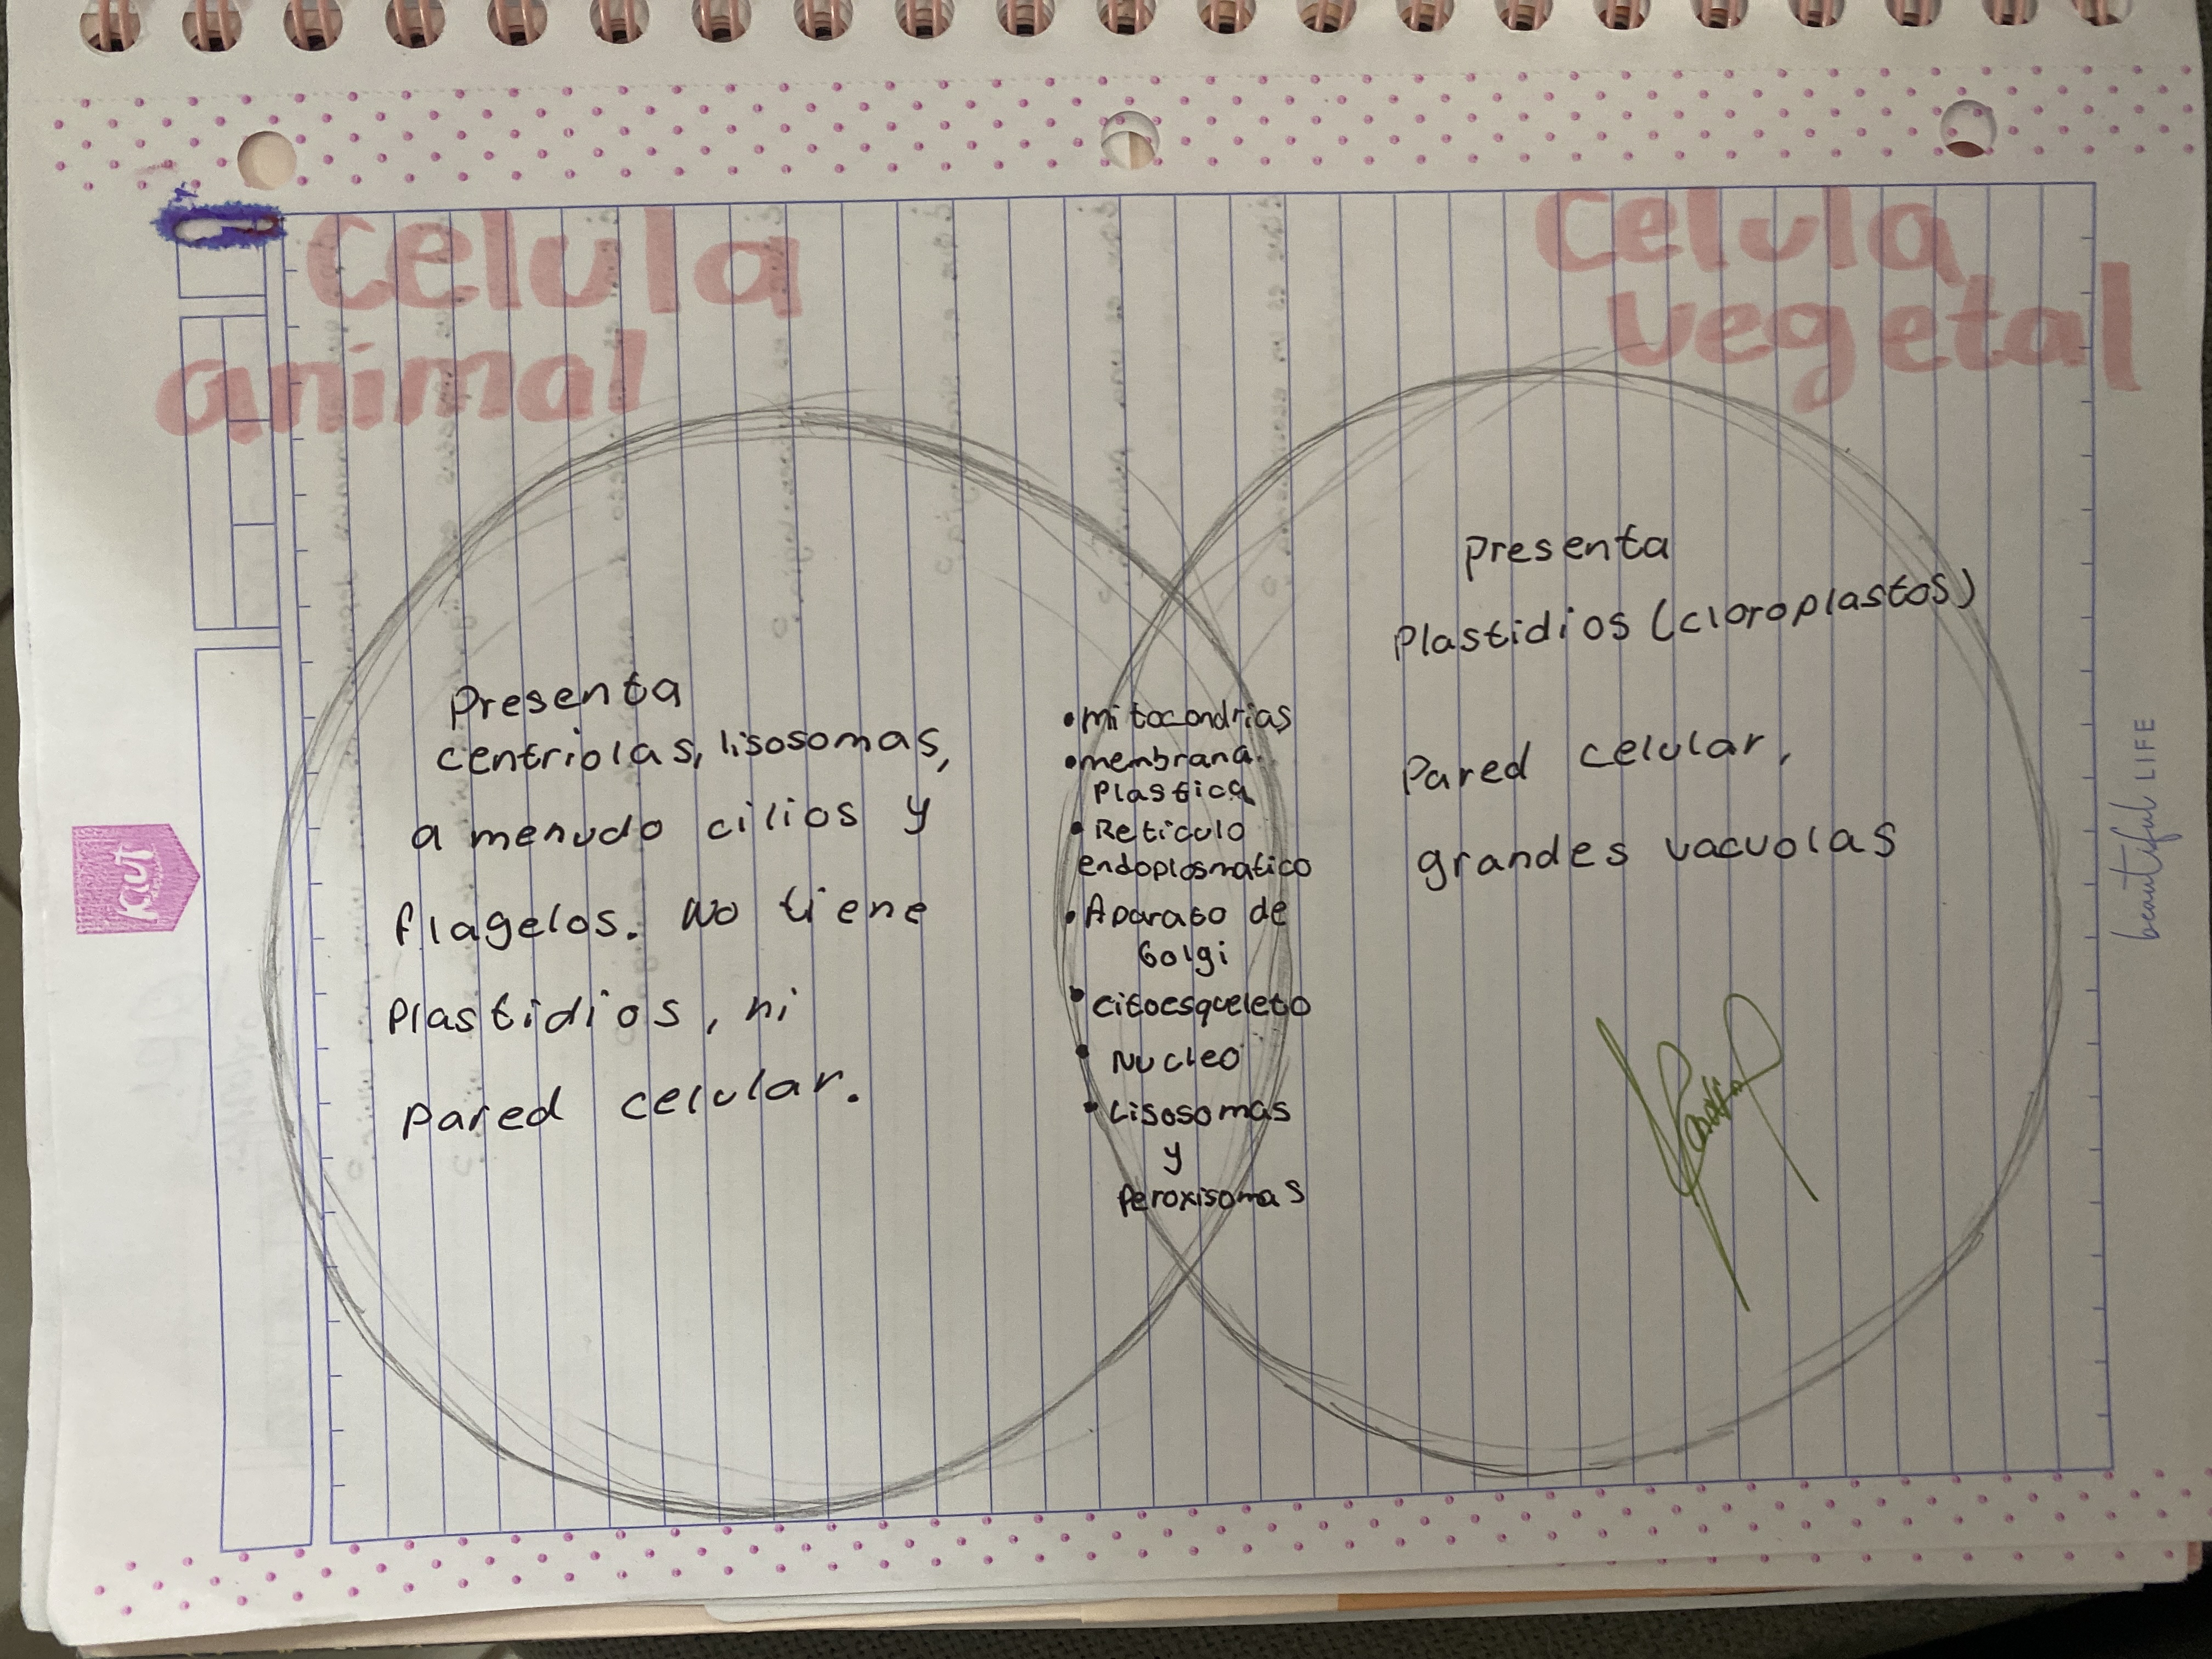 celula
animal
celula
vegetal
Presenta
centriolas, lisosomas,
a menudo cilios y
flagelos. No tiene
Plastidios, ni
Pared celular.
• mitocondrias
• membrana
Plastica
• Reticulo
endoplosmatico
• Aparato de
Golgi
• citoesqueleto
• Nucleo
• Lisosomas
y
Peroxisomas
presenta
Plastidios (cloroplastos)
Pared celular,
grandes vacuolas
kut
beautiful LIFE